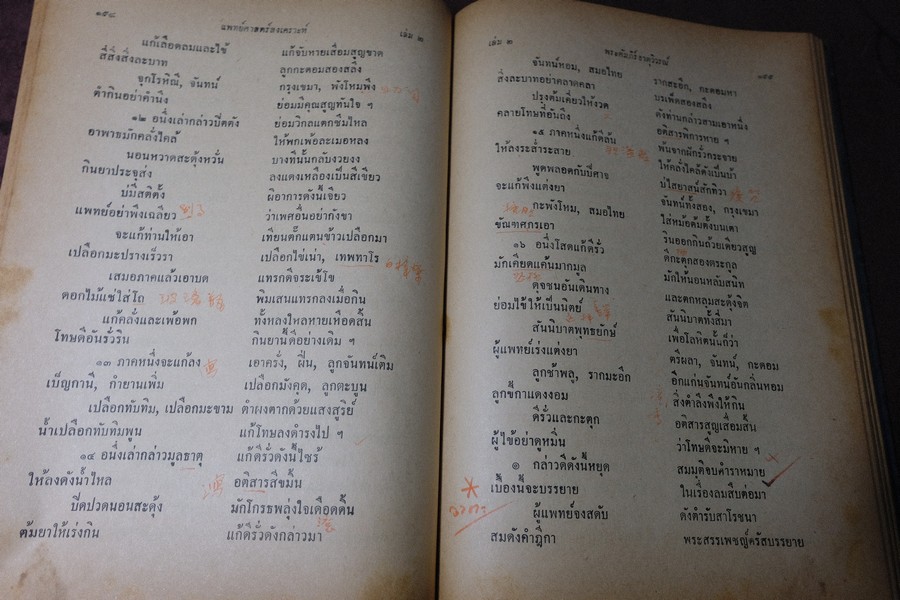 ๑๙๔
แพทย์ศาสตร์สงเคราะห์
เล่ม ๒
แก้เลือดลมและไข้ แก้จับหายเสื่อมสูญขาด
สี่สิ่งสิ่งละบาท ลูกกะดอมสองสลึง
จุกโรหิณี, จันทน์ กรุงเขมา, พังโหมพึง
ต้ำกินอย่าคำนึง ย่อมมีคุณสูญทันใจ ฯ
๑๒ อนึ่งเล่ากล่าวปิตตัง ย่อมวิกลแตกซึมไหล
อาพาธมักคลั่งไคล้ ให้พกเพ้อละเมอหลง
นอนหวาดสะดุ้งหวั่น บางทีนั้นกลับงวยงง
กินยาประจุส่ง ลงแดงเหลืองเป็นสีเขียว
บ่มีสติตั้ง ผิอาการดังนี้เจียว
แพทย์อย่าพึงเฉลียว ว่าเพศอื่นอย่ากังขา
จะแก้ท่านให้เอา เทียนตั๊กแตนข้าวเปลือกมา
เปลือกมะปรางเร็วรา เปลือกไข่เน่า, เทพทาโร
เสมอภาคแล้วเอาบด แทรกดีจระเข้โข
ดอกไม้แช่ใส่โถ พิมเสนแทรกลงเมื่อกิน
แก้คลั่งและเพ้อพก ทั้งหลงใหลหายเหือดสิ้น
โทษดีอันรั่วริน กินยานี้ดีอย่างเดิม ฯ
๑๓ ภาคหนึ่งจะแก้ลง เอาครั่ง, ฝิ่น, ลูกจันทน์เติม
เบ็ญกานี, กำยานเพิ่ม เปลือกมังคุด, ลูกตะบูน
เปลือกทับทิม, เปลือกมะขาม ตำผงตากด้วยแสงสูริย์
น้ำเปลือกทับทิมพูน แก้โทษลงดำรงไป ฯ
๑๔ อนึ่งเล่ากล่าวมูลธาตุ แก้ดีรั่วดังนี้ไซร้
ให้ลงดังน้ำไหล อติสารสีขมิ้น
บิดปวดนอนสะดุ้ง มักโกรธพลุ่งใจเดือดดิ้น
ต้มยาให้เร่งกิน แก้ดีรั่วดังกล่าวมา
เล่ม ๒
พระคัมภีร์ธาตุวิวรณ์
๑๙๕
จันทน์หอม, สมอไทย รากสะอึก, กะดอมหา
สิ่งละบาทอย่าคลาดคลา บรเพ็ดสองสลึง
ปรุงต้มเคี่ยวให้งวด ดังท่านกล่าวสามเอาหนึ่ง
คลายโทษที่อันถึง อติสารพิการหาย ฯ
๑๕ ภาคหนึ่งแก้ดีล้น พ้นจากฝักรั่วกระจาย
ให้ลงระส่ำระสาย ให้คลั่งไคล้ดังเป็นบ้า
พูดพลอดกับปีศาจ บ่ใสยาสน์สักทิวา
จะแก้พึงแต่งยา จันทน์ทั้งสอง, กรุงเขมา
กะพังโหม, สมอไทย ใส่หม้อต้มตั้งบนเตา
ขัณฑศกรเอา รินออกกินถ้วยเดียวสูญ
๑๖ อนึ่งโสดแก้ดีรั่ว ดีกะตุกสองตระกูล
มักเคียดแค้นมากมูล มักให้นอนหลับสนิท
ดุจชนอันเดินทาง และตกหลุมสะดุ้งจิต
ย่อมไข้ให้เป็นนิตย์ สันนิบาตทั้งสี่มา
สันนิบาตพุทธยักษ์ เพื่อโลหิตนั้นก็ว่า
ผู้แพทย์เร่งแต่งยา ตรีผลา, จันทน์, กะดอม
ลูกช้าพลู, รากมะอึก อีกแก่นจันทน์อันกลิ่นหอม
ลูกขี้กาแดงงอม สิ่งตำลึงพึงให้กิน
ดีรั่วและกะตุก อติสารสูญเสื่อมสิ้น
ผู้ไข้อย่าดูหมิ่น ว่าโทษดีจะมิหาย ฯ
๑ กล่าวดีดังนี้หยุด สมมุติจบคำราหมาย
เบื้องนี้จะบรรยาย ในเรื่องลมสืบต่อมา
ผู้แพทย์จงสดับ ดังตำรับสาโรชนา
สมดังคำฎีกา พระสรรเพชญ์ครัสบรรยาย